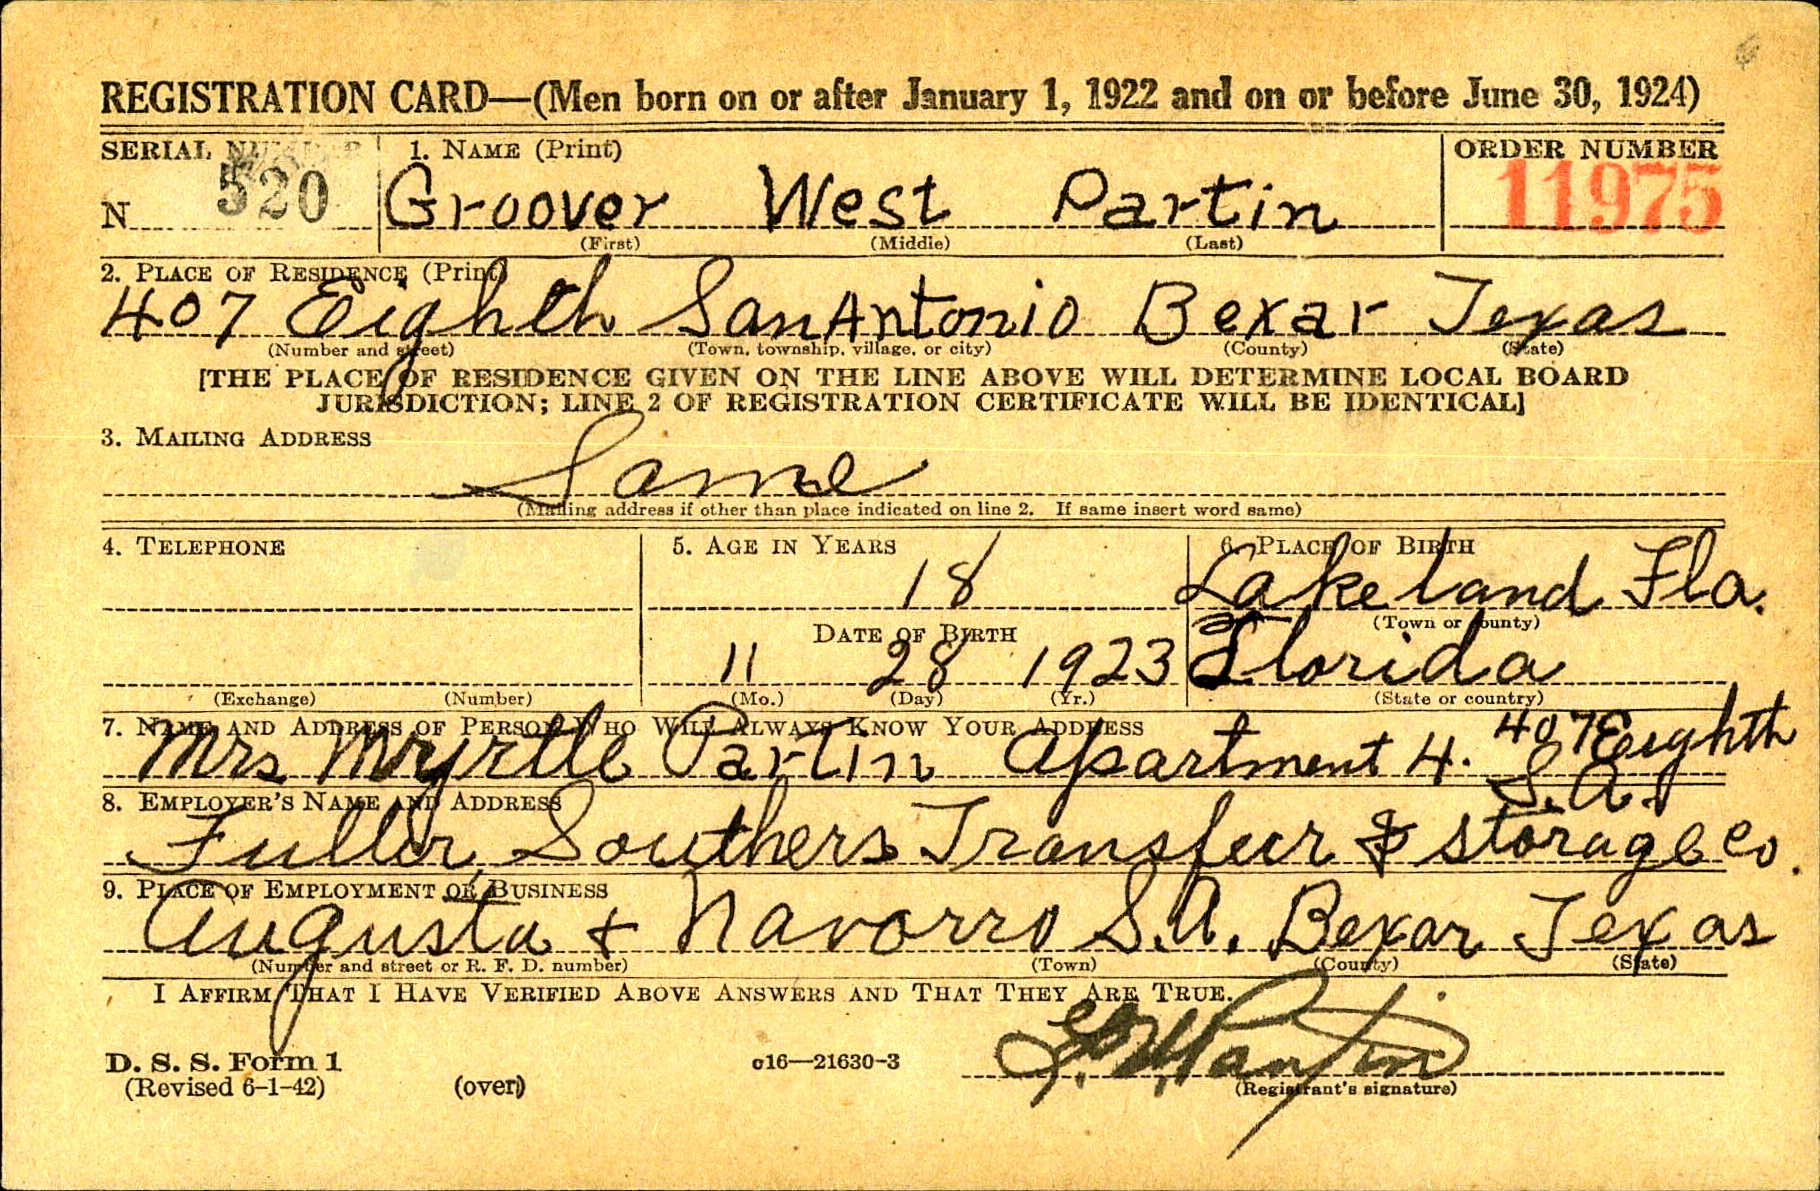 REGISTRATION CARD—(Men born on or after January 1, 1922 and on or before June 30, 1924)
SERIAL NUMBER 1. NAME (Print) ORDER NUMBER
N 520 Groover West Partin 11975
(First) (Middle) (Last)
2. PLACE OF RESIDENCE (Print)
407 Eighth San Antonio Bexar Texas
(Number and street) (Town, township, village, or city) (County) (State)
[THE PLACE OF RESIDENCE GIVEN ON THE LINE ABOVE WILL DETERMINE LOCAL BOARD
JURISDICTION; LINE 2 OF REGISTRATION CERTIFICATE WILL BE IDENTICAL]
3. MAILING ADDRESS
Same
(Mailing address if other than place indicated on line 2. If same insert word same)
4. TELEPHONE 5. AGE IN YEARS 6. PLACE OF BIRTH
18 Lakeland Fla.
DATE OF BIRTH (Town or county)
11 28 1923 Florida
(Exchange) (Number) (Mo.) (Day) (Yr.) (State or country)
7. NAME AND ADDRESS OF PERSON WHO WILL ALWAYS KNOW YOUR ADDRESS
Mrs Myrtle Partin Apartment 4. 407 Eighth
S.A.
8. EMPLOYER'S NAME AND ADDRESS
Fuller, Southers Transfeer & Storage Co.
9. PLACE OF EMPLOYMENT OR BUSINESS
Augusta + Navorro S.A. Bexar Texas
(Number and street or R. F. D. number) (Town) (County) (State)
I AFFIRM THAT I HAVE VERIFIED ABOVE ANSWERS AND THAT THEY ARE TRUE.
D. S. S. Form 1 c16—21630-3 G. W. Partin
(Revised 6-1-42) (over) (Registrant's signature)